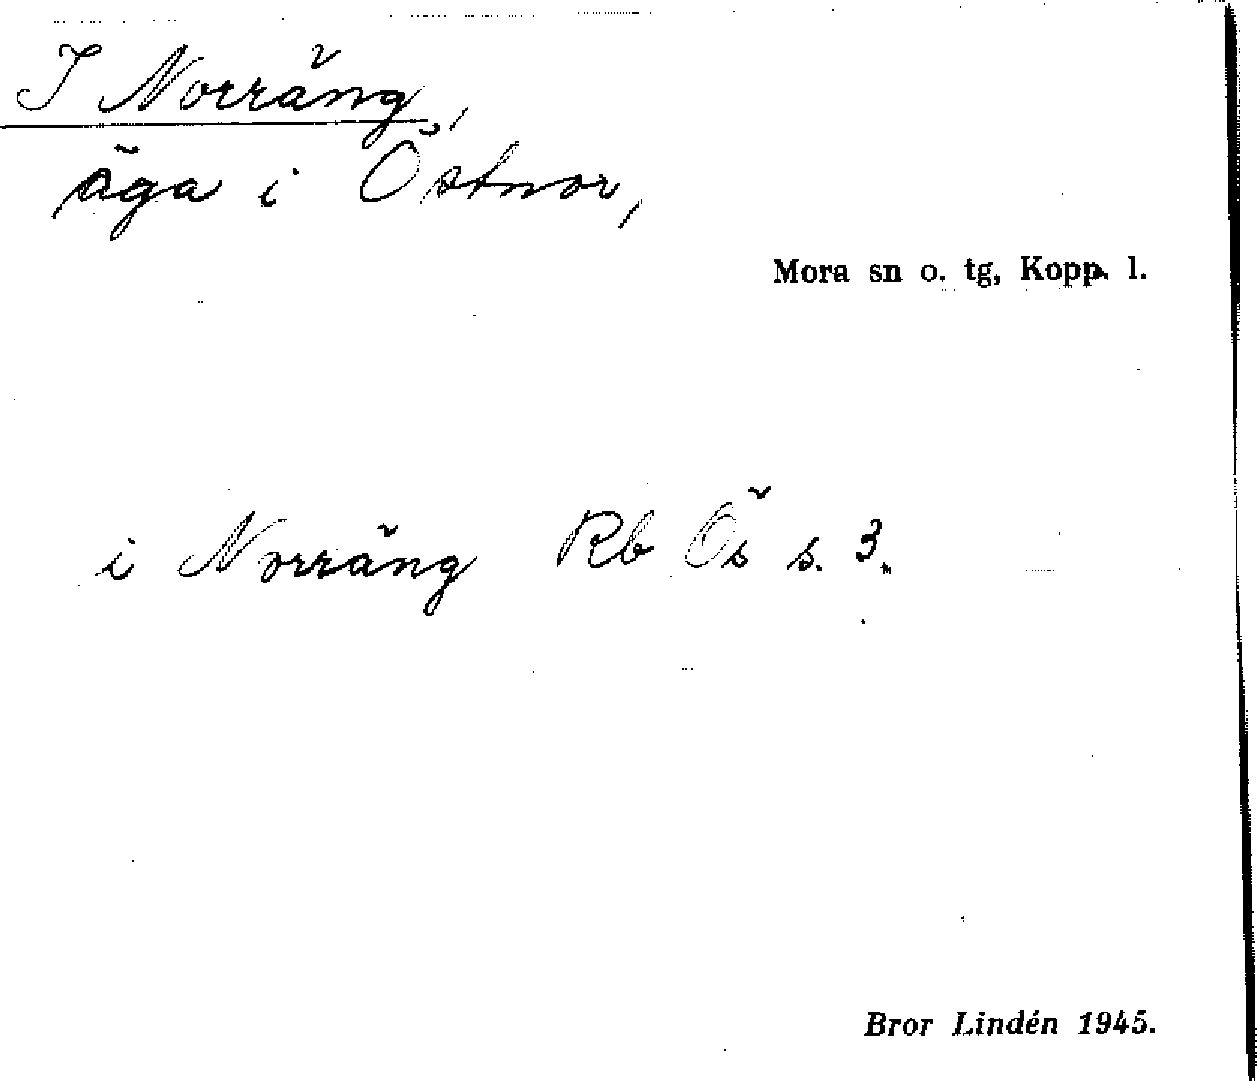 I Norräng,
äga i Östnor,
Mora sn o. tg, Kopp. l.
i Norräng Rb Ös s. 3.
Bror Lindén 1945.